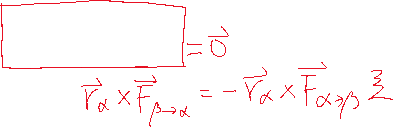 = \vec{0}
\vec{r}_α × \vec{F}_{β→α} = -\vec{r}_α × \vec{F}_{α→β}